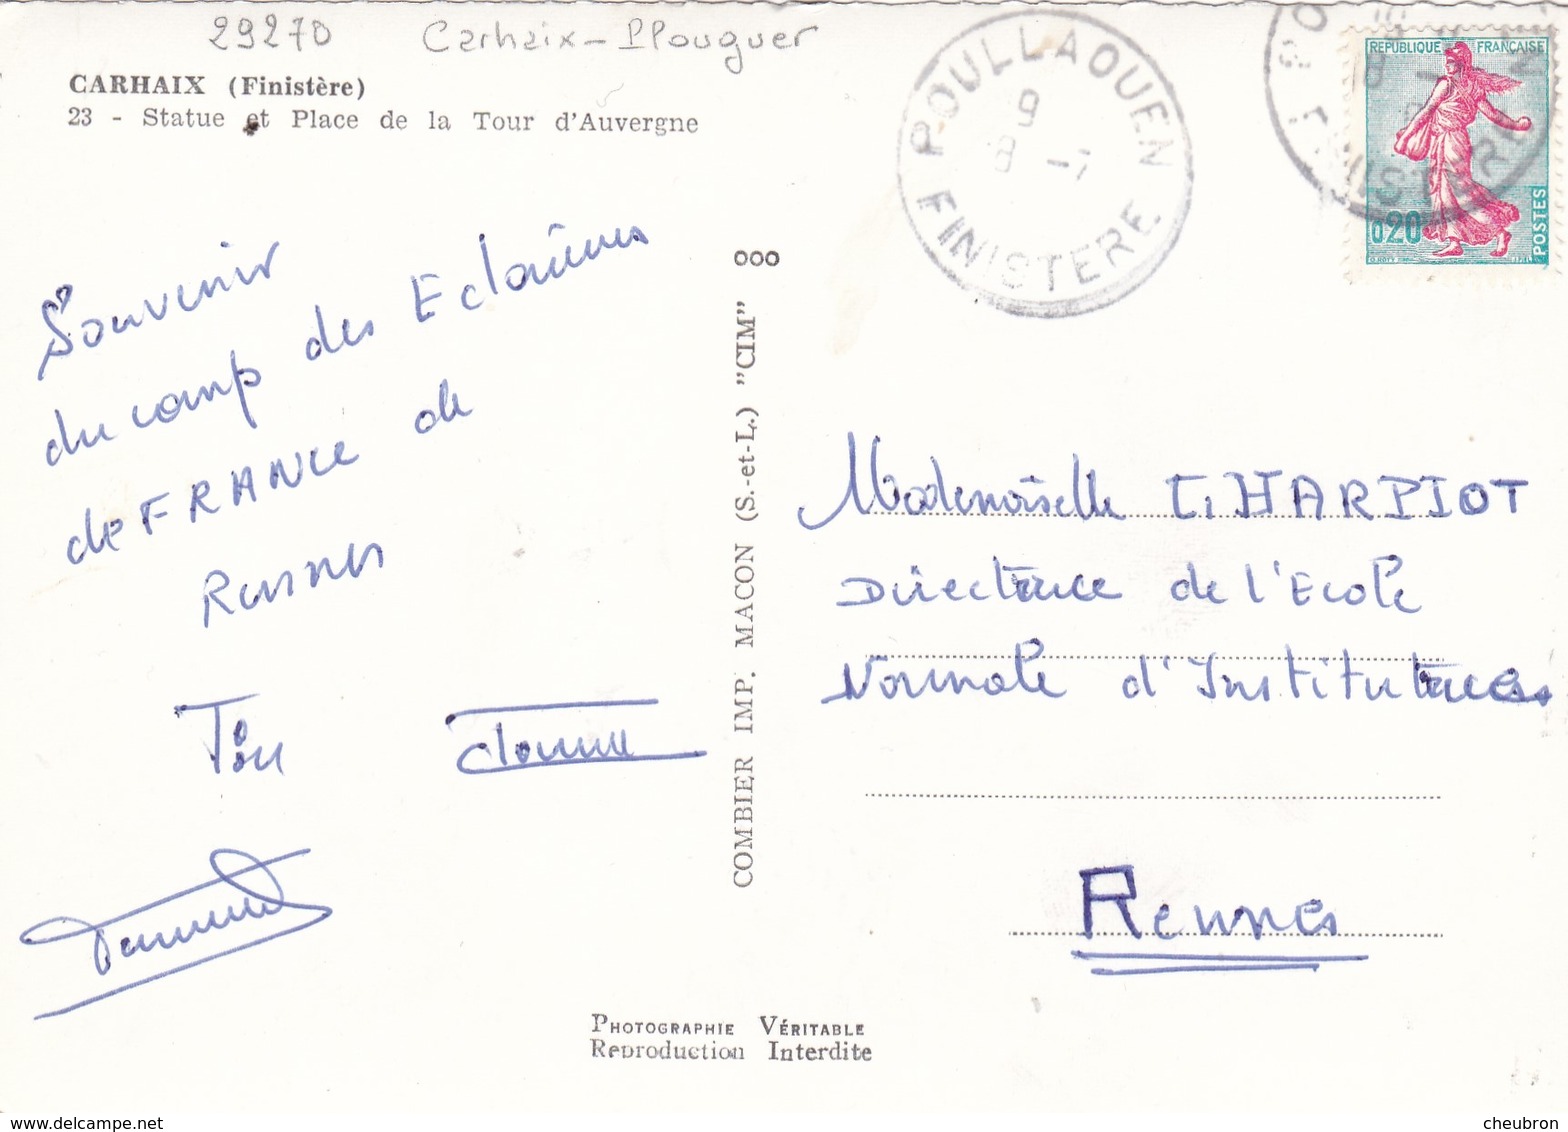 29270 Carhaix-Plouguer
CARHAIX (Finistère)
23 - Statue et Place de la Tour d'Auvergne
Souvenir
du camp des Eclaireurs
de FRANCE de
Rennes
COMBIER IMP. MACON (S.-et-L.) "CIM"
POULLAOUEN
9
8 -7
FINISTERE
REPUBLIQUE FRANÇAISE
0,20
POSTES
FINISTERE
Mademoiselle HARPIOT
Directrice de l'Ecole
Normale d'Institutrices
Rennes
PHOTOGRAPHIE VÉRITABLE
Reproduction Interdite
www.delcampe.net
cheubron